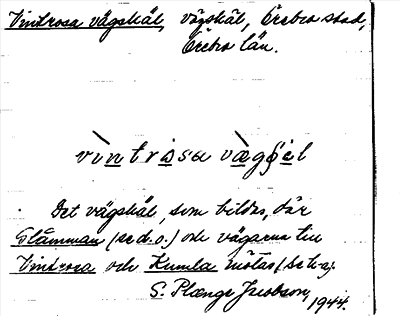 Vintrosa vägskäl, vägskäl, Örebro stad,
Örebro län.
vìntrosa vägʃel
Det vägskäl, som bildas, där
Glämman (se d.o.) och vägarna till
Vintrosa och Kumla mötas
S. Plænge Jacobson, 1944.